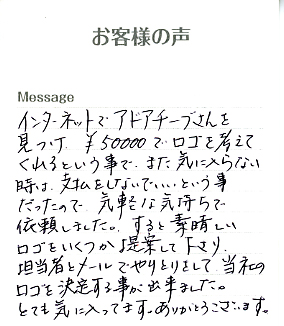 お客様の声
Message
インターネットでアドアチーブさんを
見つけ、¥50000でロゴを考えて
くれるという事で、また気に入らない
時は、支払をしないでいいという事
だったので、気軽な気持ちで
依頼しました。すると素晴しい
ロゴをいくつか提案して下さり、
担当者とメールでやりとりをして、当社の
ロゴを決定する事が出来ました。
とても気に入ってます。ありがとうございます。